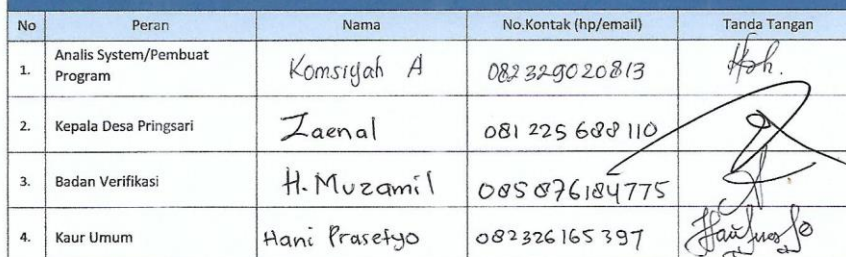 No Peran Nama No.Kontak (hp/email) Tanda Tangan
1. Analis System/Pembuat Program Komsiyah A 082329020813
2. Kepala Desa Pringsari Zaenal 081 225 688 110
3. Badan Verifikasi H. Muzamil 085876184775
4. Kaur Umum Hani Prasetyo 082326165397